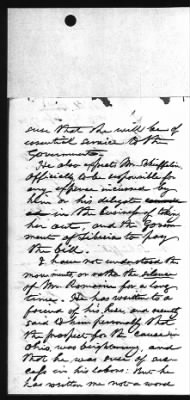 ever that she will be of
essential service to the
Government.
He also expects Mr. Shiffelin
officially to be responsible for
any expense incurred by
him or his delegate
in the business of taking
her out, and the Govern-
ment of Liberia to pay
the bill.
I have not understood the
movements or rather the silence
of Mr. Romaine for a long
time. He has written to a
friend of his here, and
said to him personally that
the prospect for the cause in
Ohio was brightening, and
that he was sure of suc-
cess in his labors. But he
has written me not a word